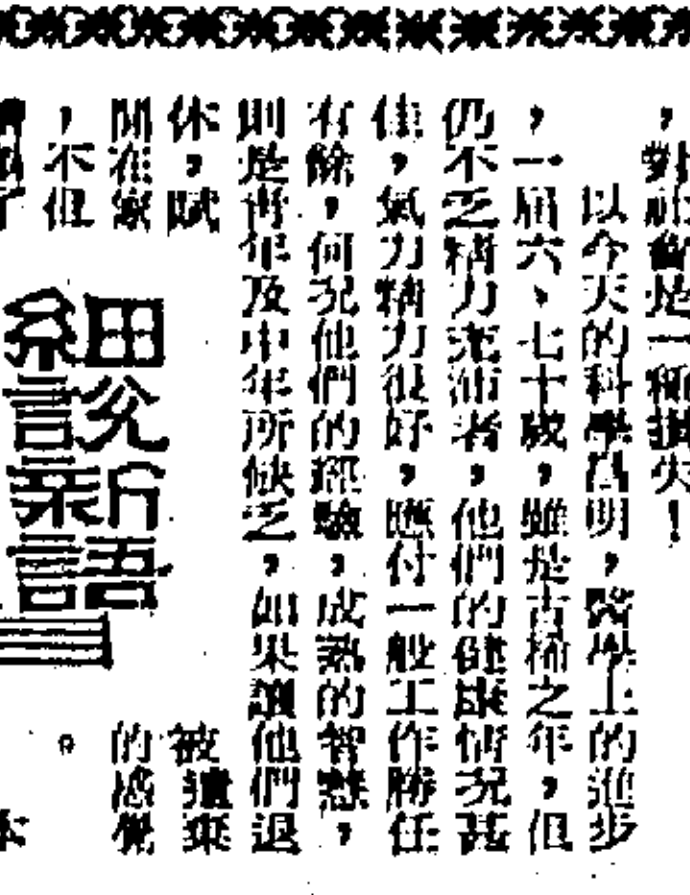 ，對社會是一種損失！
以今天的科學昌明，醫學上的進步
，一屆六、七十歲，雖是古稀之年，但
仍不乏精力充沛者，他們的健康情況甚
佳，氣力精力很好，應付一般工作勝任
有餘，何況他們的經驗，成熟的智慧，
則是青年及中年所缺乏，如果讓他們退
休，賦
被遺棄
閒在家
的感覺
，不但
。
細說新語